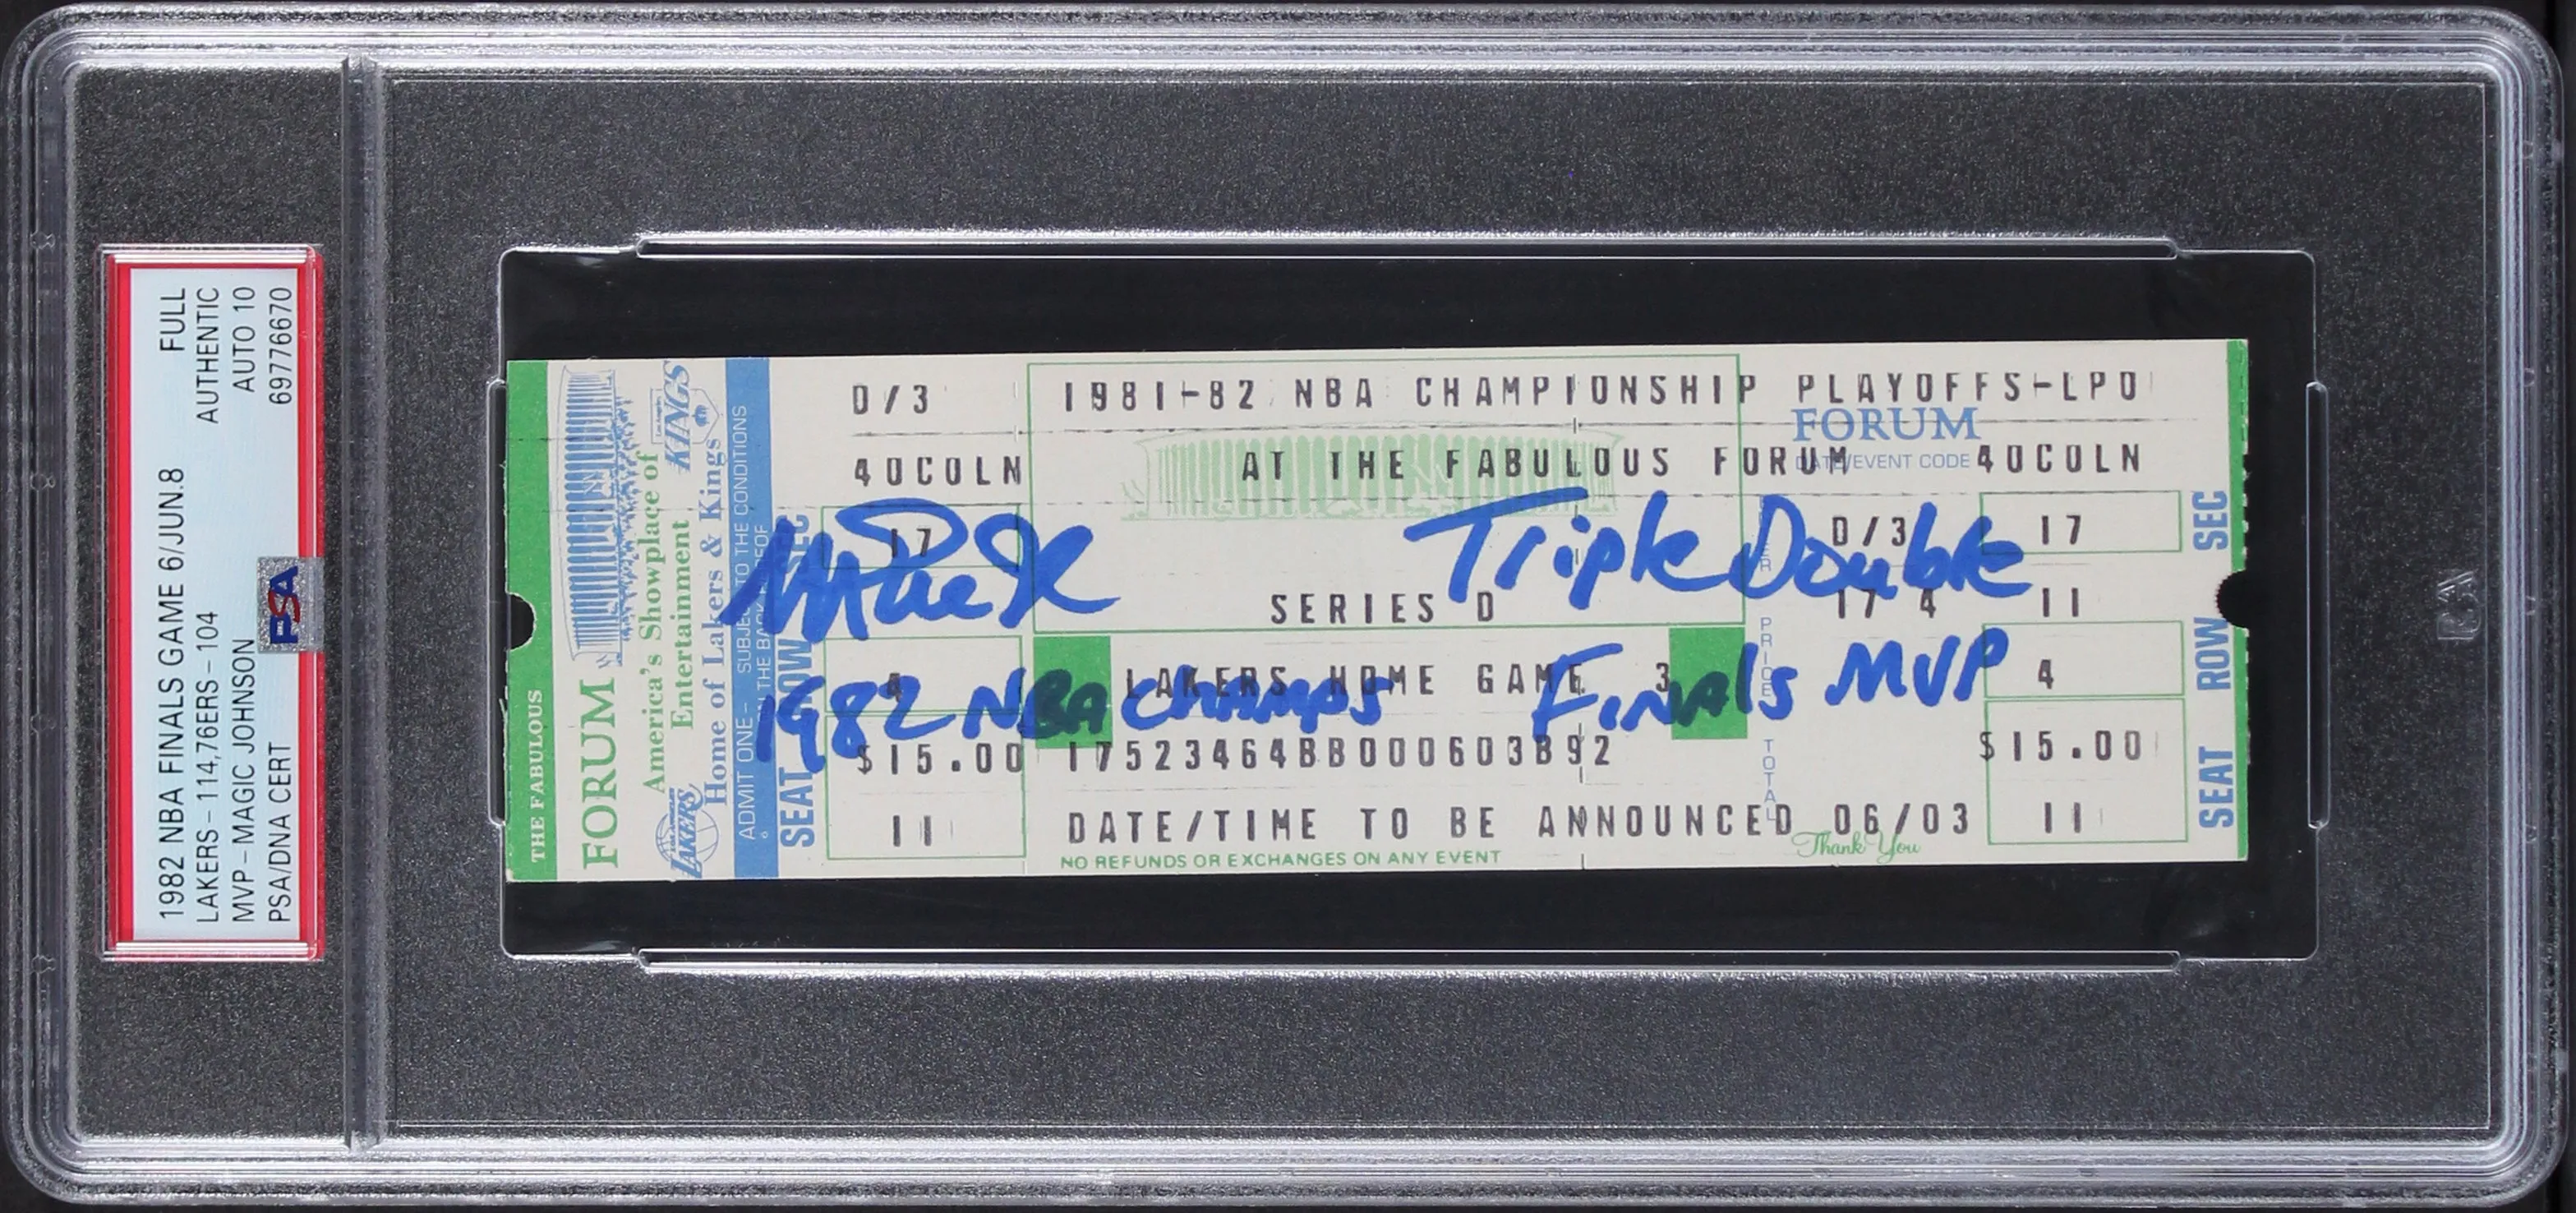 1982 NBA FINALS GAME 6/JUN.8 FULL
LAKERS - 114,76ERS - 104 AUTHENTIC
MVP - MAGIC JOHNSON AUTO 10
PSA/DNA CERT 69776670
PSA
THE FABULOUS
FORUM
America's Showplace of
Entertainment
Home of Lakers & Kings
LAKERS
Los Angeles
KINGS
ADMIT ONE - SUBJECT TO THE CONDITIONS
ON THE BACK HEREOF
D/3 1981-82 NBA CHAMPIONSHIP PLAYOFFS-LPO
FORUM
40COLN AT THE FABULOUS FORUM DATE/EVENT CODE 40COLN
SEC 17 D/3 17 SEC
Triple Double
SERIES D 17 4 11
ROW 4 LAKERS HOME GAME 3 4 ROW
1982 NBA Champs Finals MVP
PRICE
TOTAL
SEAT $15.00 17523464BB000603B92 $15.00 SEAT
11 DATE/TIME TO BE ANNOUNCED 06/03 11
NO REFUNDS OR EXCHANGES ON ANY EVENT
Thank You